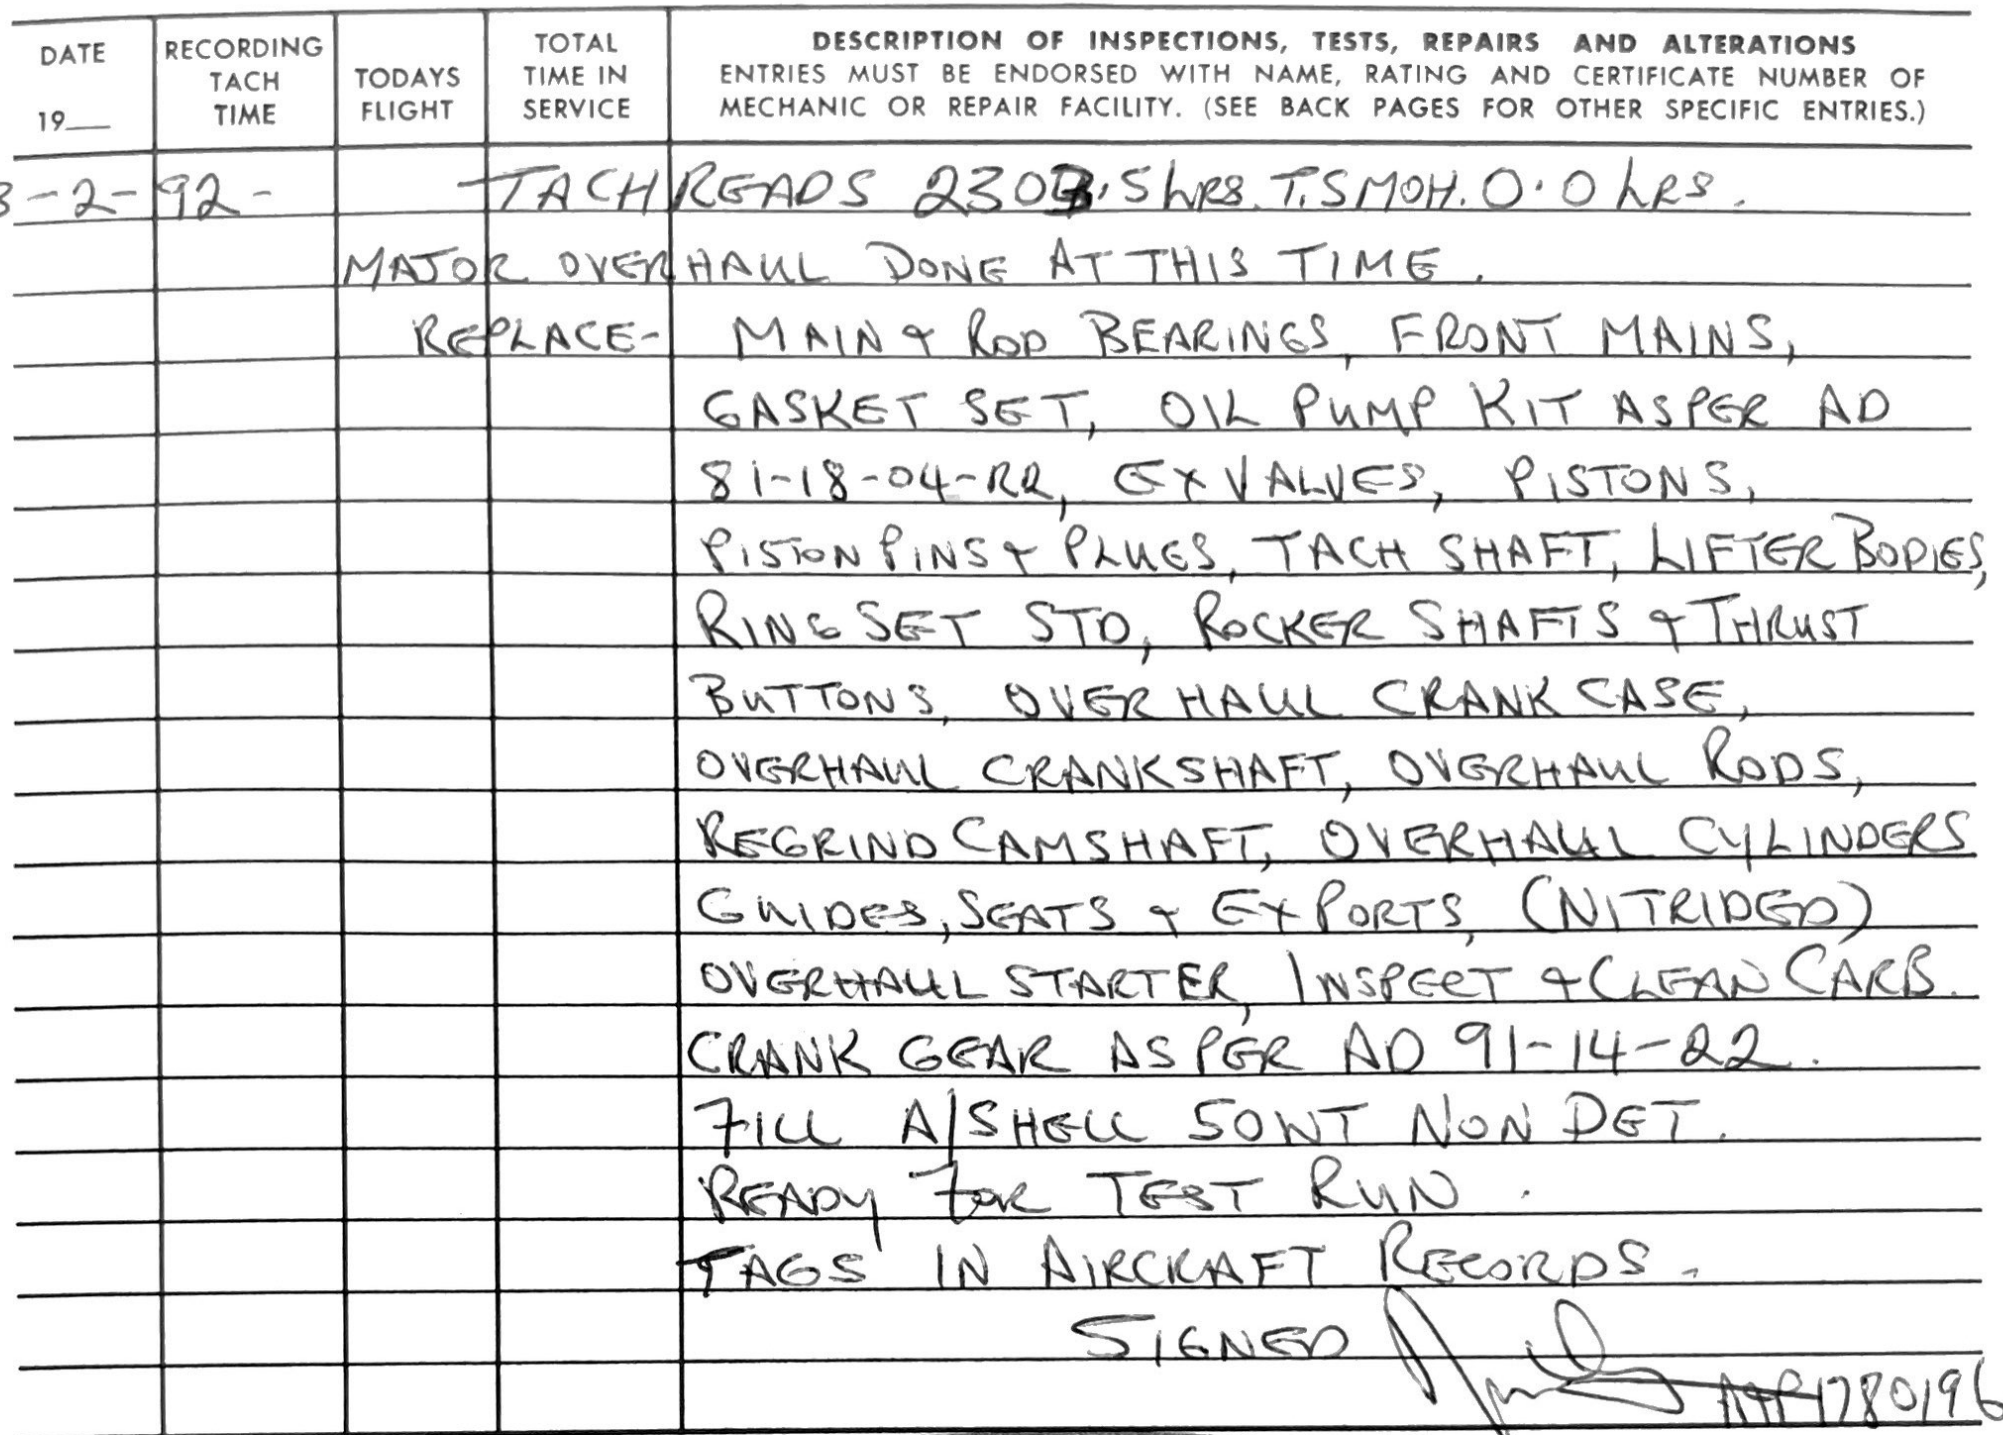 DATE
19__
RECORDING
TACH
TIME
TODAYS
FLIGHT
TOTAL
TIME IN
SERVICE
DESCRIPTION OF INSPECTIONS, TESTS, REPAIRS AND ALTERATIONS
ENTRIES MUST BE ENDORSED WITH NAME, RATING AND CERTIFICATE NUMBER OF
MECHANIC OR REPAIR FACILITY. (SEE BACK PAGES FOR OTHER SPECIFIC ENTRIES.)
3-2-92- TACH READS 2303.5 hRS. T.S MOH. 0.0 hRS.
MAJOR OVERHAUL DONE AT THIS TIME.
REPLACE- MAIN & ROD BEARINGS, FRONT MAINS,
GASKET SET, OIL PUMP KIT AS PER AD
81-18-04-R2, EX VALVES, PISTONS,
PISTON PINS & PLUGS, TACH SHAFT, LIFTER BODIES,
RING SET STD, ROCKER SHAFTS & THRUST
BUTTONS, OVERHAUL CRANK CASE,
OVERHAUL CRANKSHAFT, OVERHAUL RODS,
REGRIND CAMSHAFT, OVERHAUL CYLINDERS
GUIDES, SEATS & EX PORTS, (NITRIDED)
OVERHAUL STARTER, INSPECT & CLEAN CARB.
CRANK GEAR AS PER AD 91-14-22.
FILL A/SHELL 50WT NON DET.
READY FOR TEST RUN.
TAGS IN AIRCRAFT RECORDS.
SIGNED
1780196